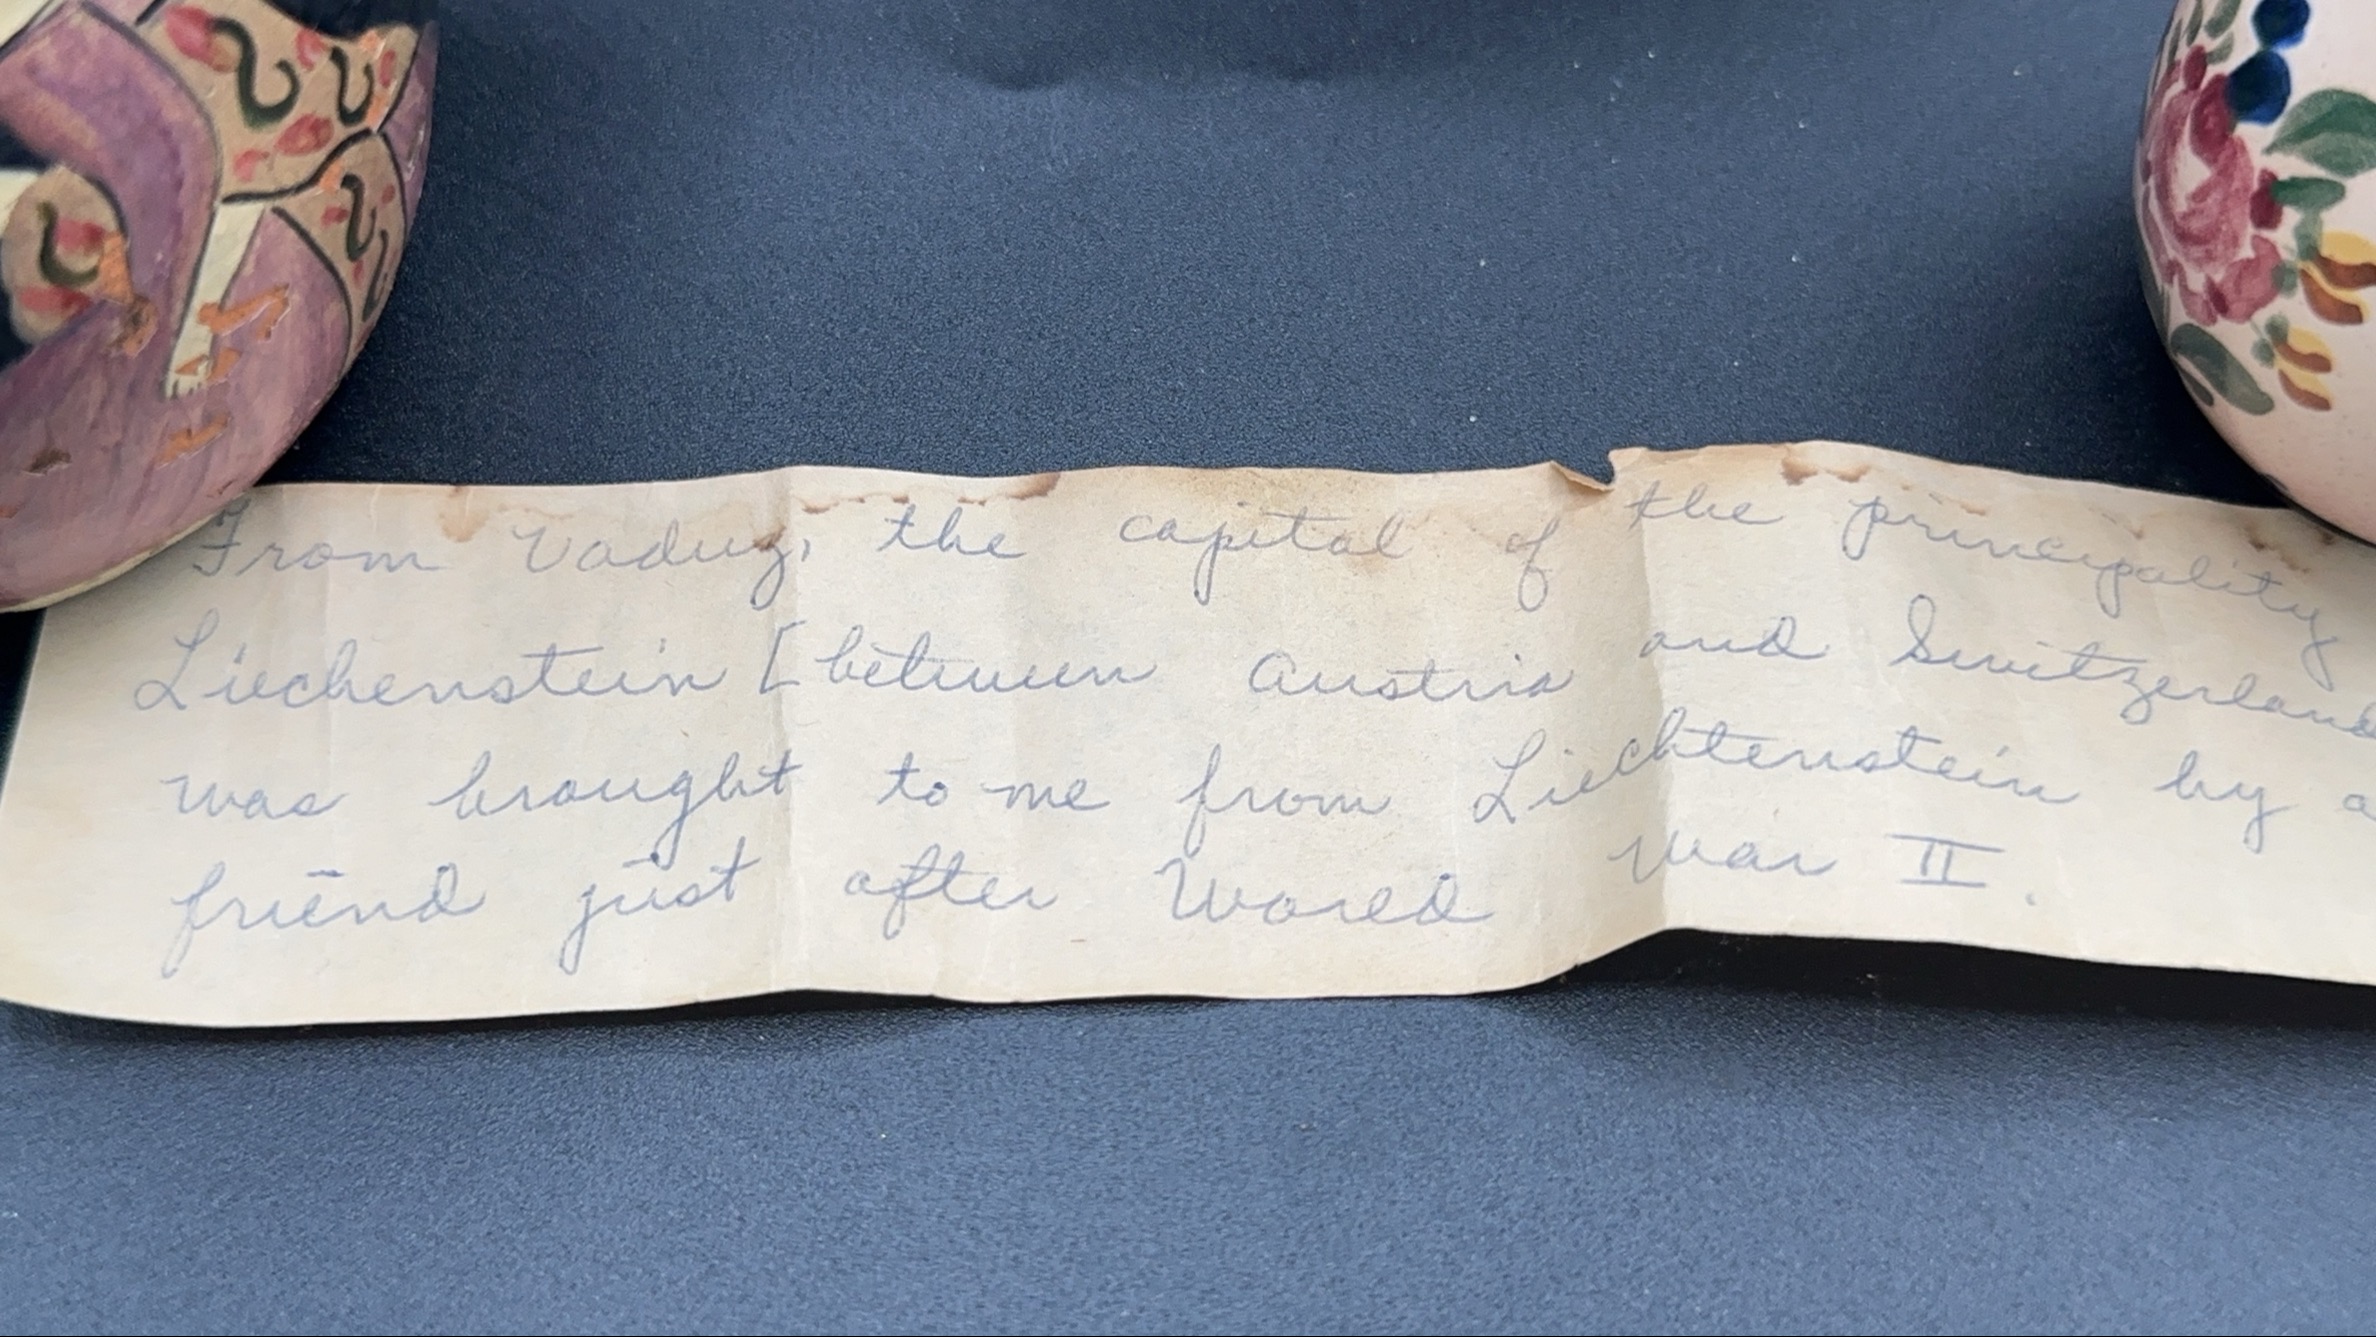 From Vaduz, the capital of the principality
Liechenstein [between Austria and Switzerland
was brought to me from Liechtenstein by a
friend just after World War II.